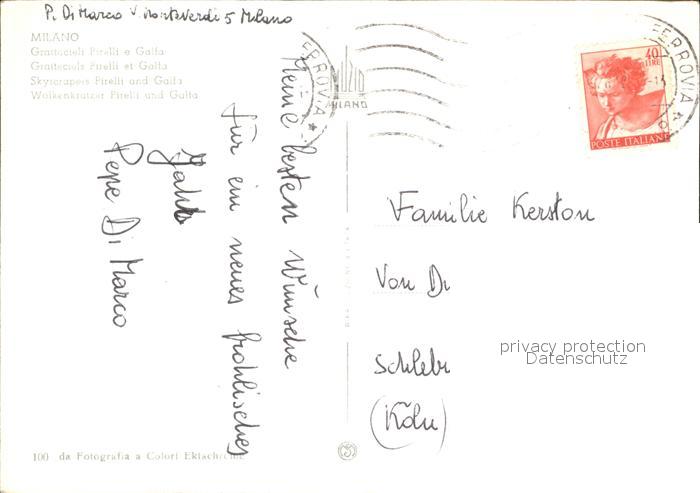 P. Di Marco V. Monteverdi 5 Milano
MILANO
Grattacieli Pirelli e Galfa
Gratteciels Pirelli et Galfa
Skyscrapers Pirelli und Galfa
Wolkenkratzer Pirelli und Galfa
Meine besten Wünsche
für ein neues frohlisches
Jahr
Pepe Di Marco
FERROVIA
MILANO
FERROVIA
40
LIRE
POSTE ITALIANE
Familie Kerston
Von Di
Schlebr
(Köln)
privacy protection
Datenschutz
100 da Fotografia a Colori Ektachrome